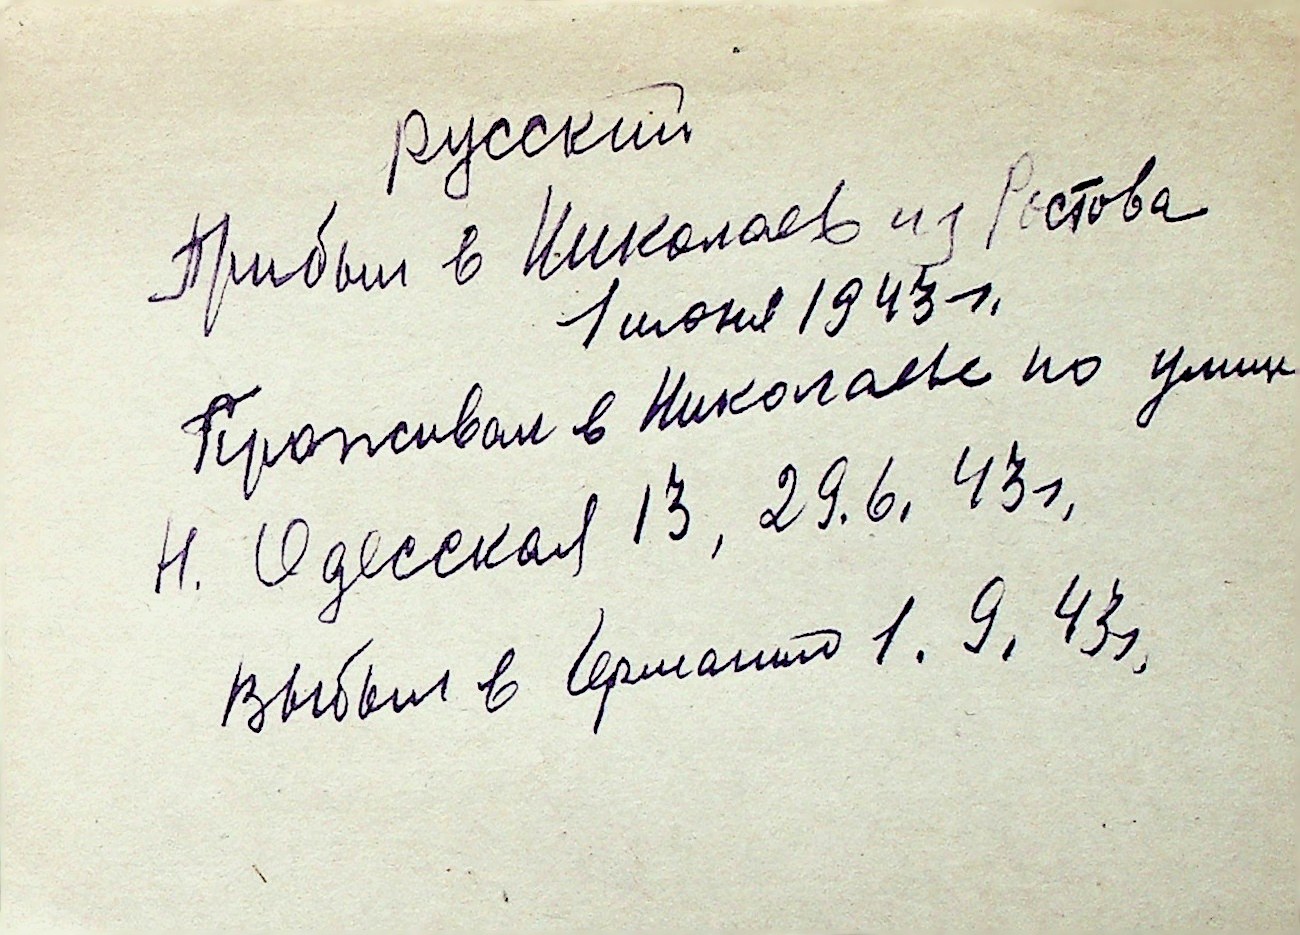 русский
Прибыл в Николаев из Ростова
1 июня 1943 г.
Проживал в Николаеве по улице
Н. Одесская 13, 29.6.43 г.
Выбыл в Германию 1.9.43 г.